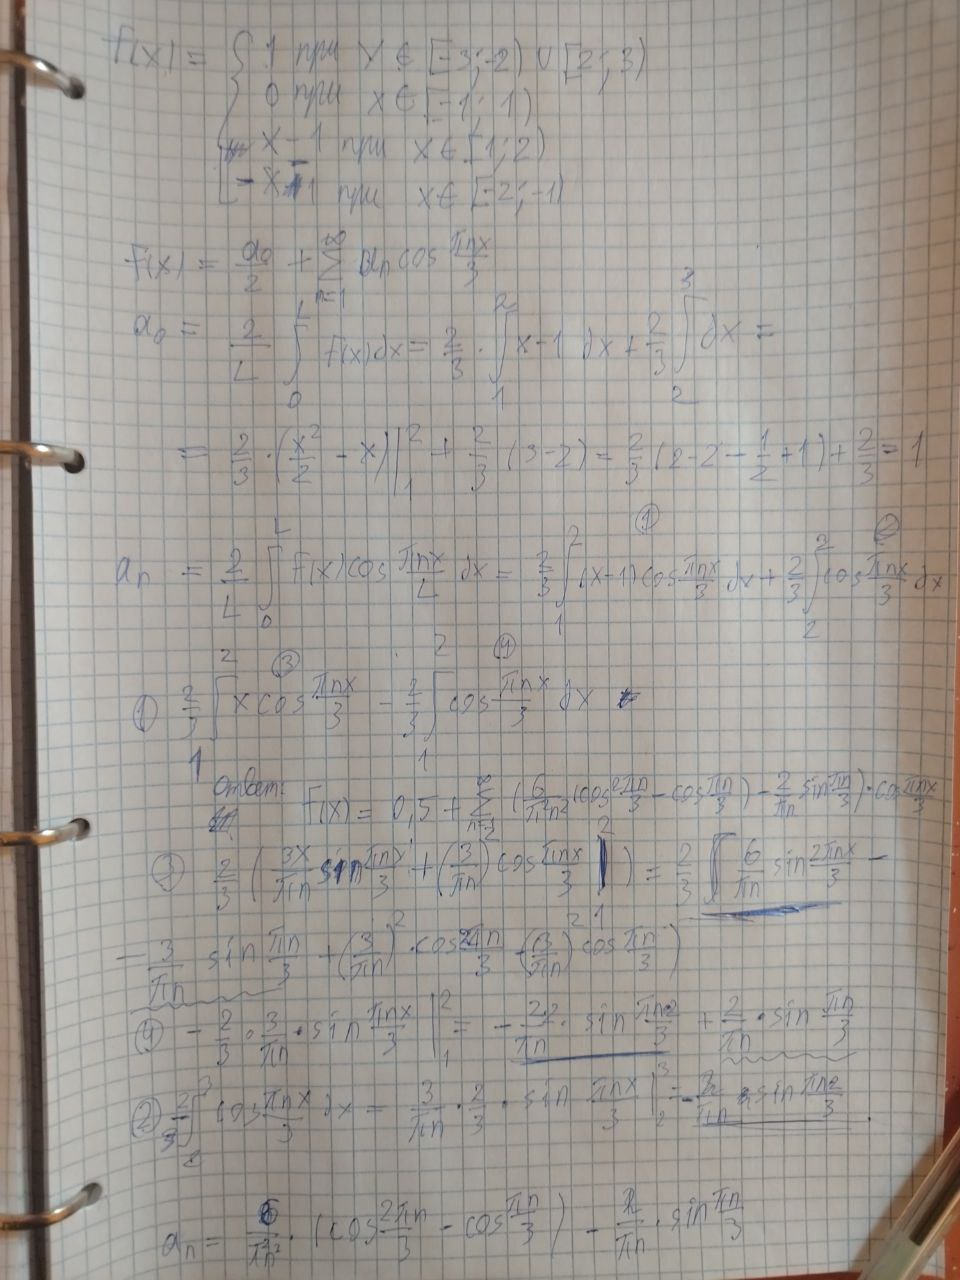 f(x) = { 1 при x ∈ [-3; -2) ∪ [2; 3)
0 при x ∈ [-1; 1)
x - 1 при x ∈ [1; 2)
- x - 1 при x ∈ [-2; -1)
f(x) = a₀/2 + ∑_{n=1}^{+∞} aₙ cos πnx/3
a₀ = 2/L ∫₀ᴸ f(x)dx = 2/3 · ∫₁² x-1 dx + 2/3 ∫₂³ dx =
= 2/3 · (x²/2 - x)|₁² + 2/3 (3-2) = 2/3 (2-2-1/2+1) + 2/3 = 1
aₙ = 2/L ∫₀ᴸ f(x) cos πnx/L dx = 2/3 ∫₁² (x-1) cos πnx/3 dx ① + 2/3 ∫₂³ cos πnx/3 dx ②
① 2/3 ∫₁² x cos πnx/3 ③ - 2/3 ∫₁² cos πnx/3 dx ④
ответ: f(x) = 0,5 + ∑_{n=1}^{∞} (6/π²n² (cos 2πn/3 - cos πn/3) - 2/πn sin πn/3) · cos πnx/3
③ 2/3 (3x/πn sin πnx/3 + (3/πn) cos πnx/3 |₁²) = 2/3 ( 6/πn sin 2πnx/3 -
- 3/πn sin πn/3 + (3/πn)² · cos 2πn/3 - (3/πn)² cos πn/3 )
④ - 2/3 · 3/πn · sin πnx/3 |₁² = - 2/πn · sin πn2/3 + 2/πn · sin πn/3
② 2/3 ∫₂³ cos πnx/3 dx = 3/πn · 2/3 · sin πnx/3 |₂³ = - 2/πn · sin πn2/3
aₙ = 6/π²n² · (cos 2πn/3 - cos πn/3) - 2/πn · sin πn/3